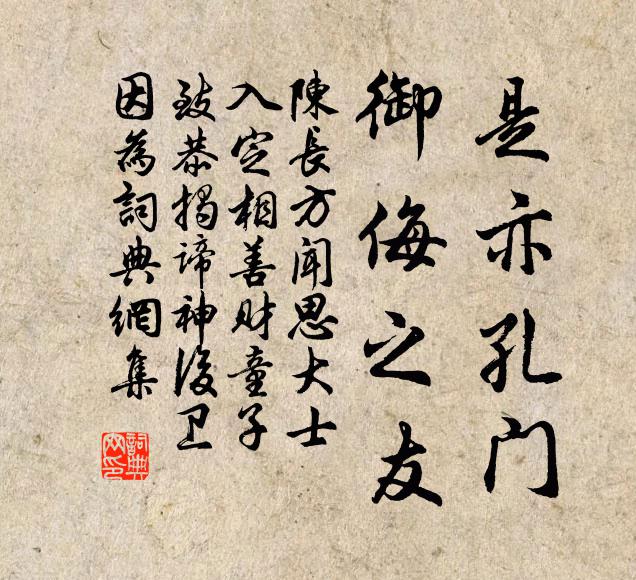 是亦孔门
御侮之友
陳長方闻思大士
入定相善财童子
致恭揭谛神後卫
因為詞典網集
詞典网印